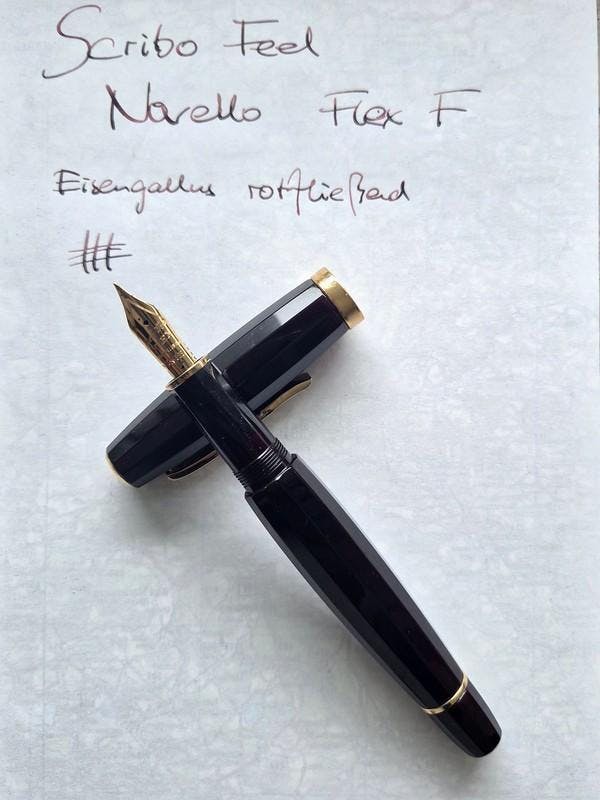 Scribo Feel
Novello Flex F
Eisengallus rotfließend